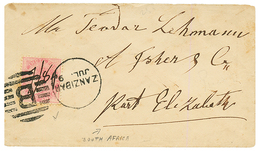 Mr. Teodor Lehmann
Fisher & Co
Port Elizabeth
ZANZIBAR
JUL 9
B
SOUTH AFRICA